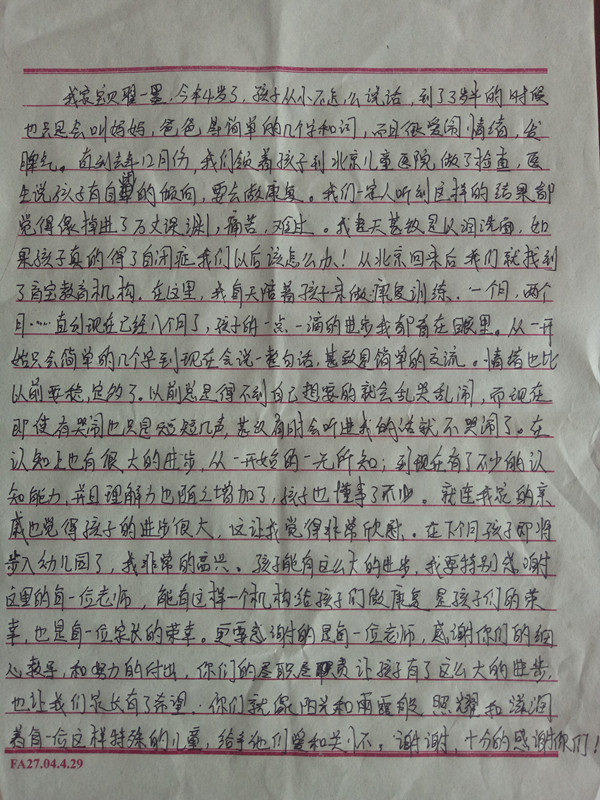 我家宝贝翟一墨,今年4岁了,孩子从小不怎么说话,到了3岁半的时候
也只是会叫妈妈,爸爸,是简单的几个字和词,而且很爱闹情绪,发
脾气。直到去年12月份,我们领着孩子到北京儿童医院做了检查,医
生说孩子有自闭的倾向,要去做康复。我们一家人听到这样的结果都
觉得像掉进了万丈深渊,痛苦,难过。我每天甚至是以泪洗面,如
果孩子真的得了自闭症我们以后该怎么办!从北京回来后我们就找到
了育宝教育机构。在这里,我每天陪着孩子来做康复训练。一个月,两个
月……直到现在已经八个月了,孩子的一点一滴的进步我都看在眼里。从一开
始只会简单的几个字到现在会说一整句话,甚至是简单的交流。情绪也比
以前要稳定的多了。以前总是得不到自己想要的就会乱哭乱闹,而现在
即使有哭闹也只是短短几声,甚至有时会听进我的话就不哭闹了。在
认知上也有很大的进步,从一开始的一无所知;到现在有了不少的认
知能力,并且理解力也随之增加了,孩子也懂事了不少。就连我家的亲
戚也觉得孩子的进步很大,这让我觉得非常欣慰。在下个月孩子即将
步入幼儿园了,我非常的高兴。孩子能有这么大的进步,我要特别感谢
这里的每一位老师,能有这样一个机构给孩子们做康复是孩子们的荣
幸,也是每一位家长的荣幸。更要感谢的是每一位老师,感谢你们的细
心教导,和努力的付出,你们的尽职尽责让孩子有了这么大的进步
也让我们家长有了希望。你们就像阳光和雨露般照耀和滋润
着每一位这样特殊的儿童,给予他们爱和关怀。谢谢,十分的感谢你们!
FA27.04.4.29